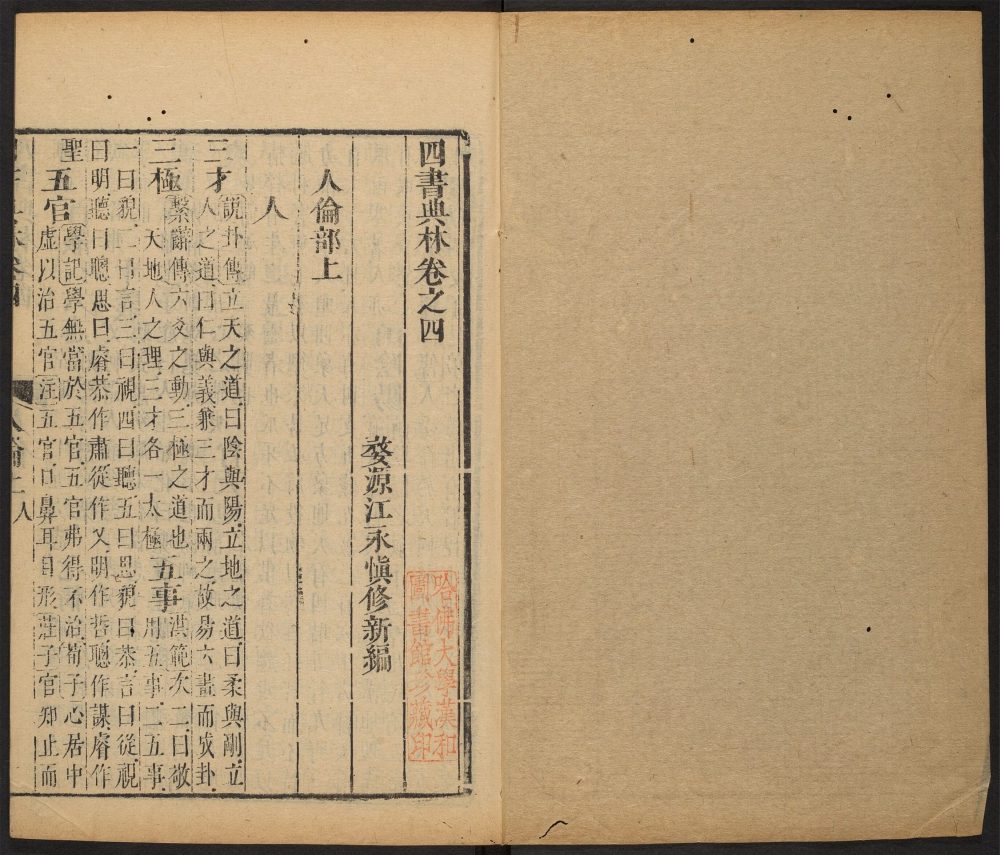 四書典林卷之四
婺源江永慎修新編
哈佛大學漢和
圖書館珍藏印
人倫部上
人
三才 說卦傳立天之道曰陰與陽立地之道曰柔與剛立
人之道曰仁與義兼三才而兩之故易六畫而成卦
三極 繫辭傳六爻之動三極之道也
天地人之理三才各一太極 五事 洪範次二曰敬
用五事二五事
一曰貌二曰言三曰視四曰聽五曰思貌曰恭言曰從視
曰明聽曰聰思曰睿恭作肅從作乂明作哲聰作謀睿作
聖 五官 學記學無當於五官五官弗得不治荀子心居中
虛以治五官注五官口鼻耳目形莊子官知止而
人倫上人